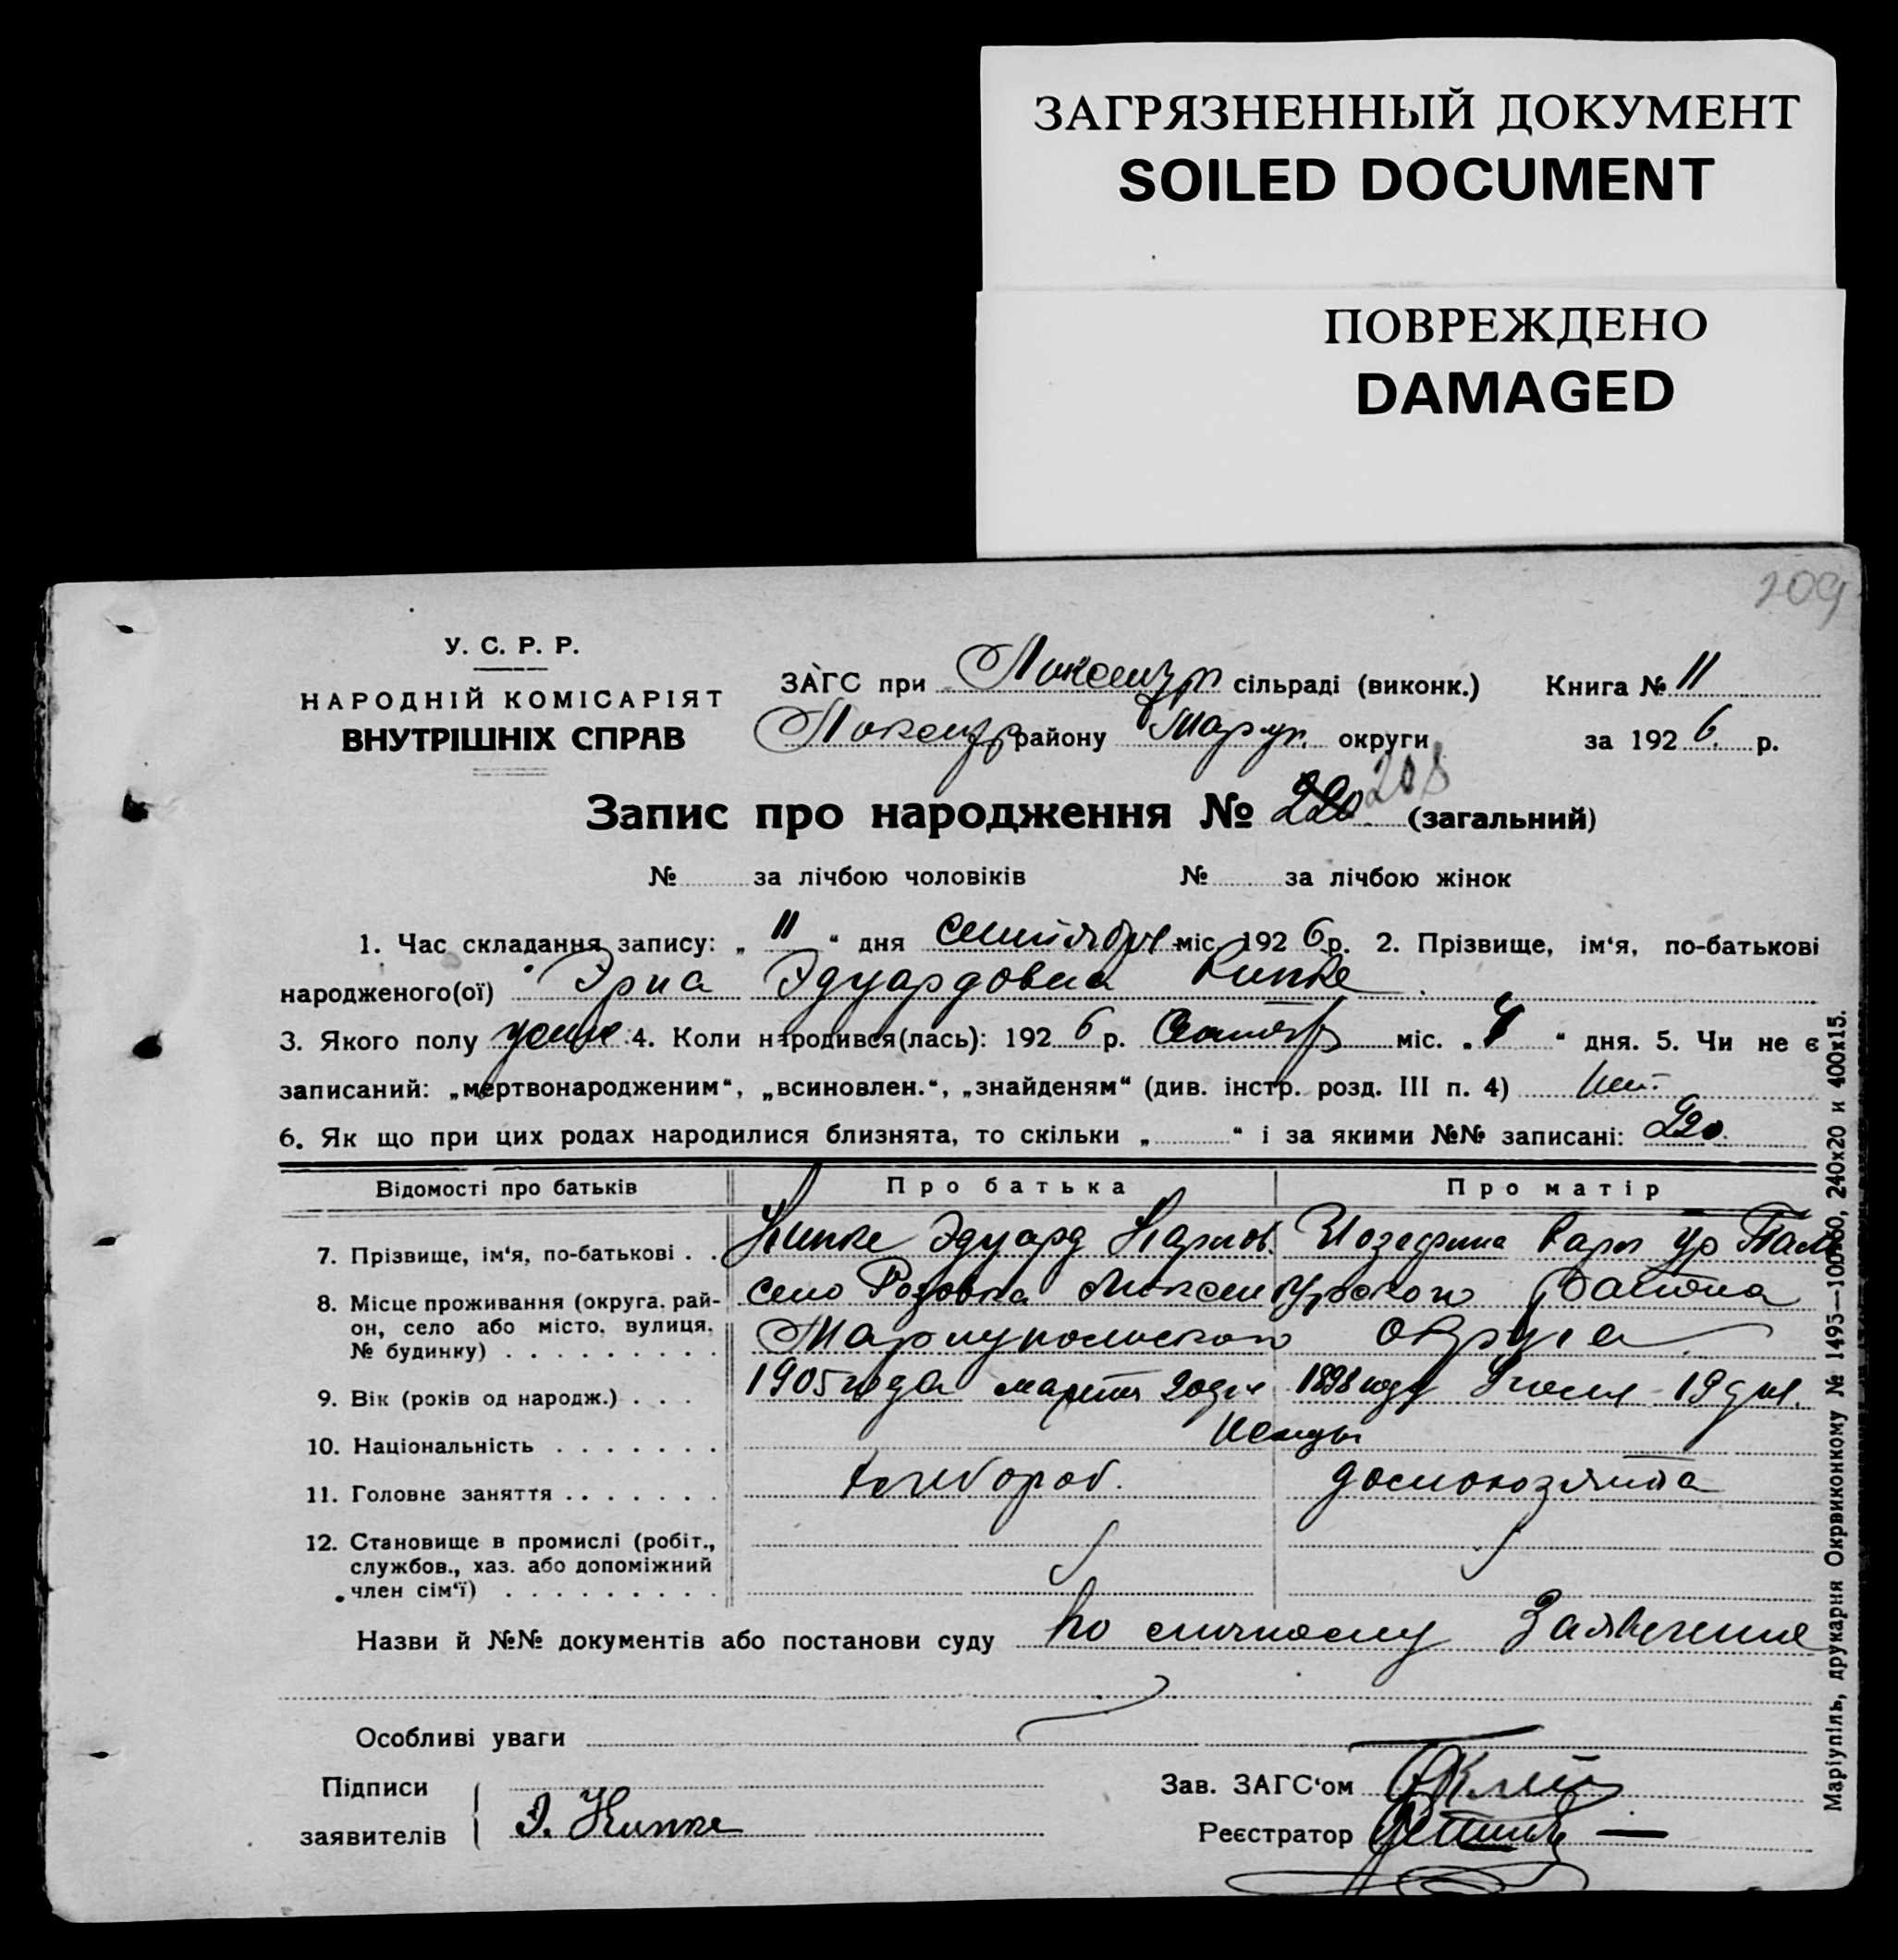 ЗАГРЯЗНЕННЫЙ ДОКУМЕНТ
SOILED DOCUMENT
ПОВРЕЖДЕНО
DAMAGED
209
У. С. Р. Р.
НАРОДНІЙ КОМІСАРІЯТ
ВНУТРІШНІХ СПРАВ
ЗАГС при сільраді (виконк.) Книга № 11
району Мариуп. округи за 1926 р.
Запис про народження № 220 208 (загальний)
№ за лічбою чоловіків № за лічбою жінок
1. Час складання запису: „ 11 “ дня сентября міс. 1926 р. 2. Прізвище, ім‘я, по-батькові
народженого(ої) Эрна Эдуардовна Кипке
3. Якого полу 4. Коли народився(лась): 1926 р. міс. „ “ дня. 5. Чи не є
записаний: „мертвонародженим“, „всиновлен.“, „знайденям“ (див. інстр. розд. III п. 4) нет.
6. Як що при цих родах народилися близнята, то скільки „ “ і за якими №№ записані: 220
Відомості про батьків Про батька Про матір
7. Прізвище, ім‘я, по-батькові . . Кипке Эдуард Карлов. Иозефина Карл ур
8. Місце проживання (округа, рай-
он, село або місто, вулиця,
№ будинку) . . . . . . . . .
село Розовка Люксембургского Района
Мариупольского Округа
9. Вік (років од народж.) . . . 1905 года марта 20 дня 1898 году Июля 19 дня.
10. Національність . . . . . . . Немцы
11. Головне заняття . . . . . . . хлебороб. домохозяйка
12. Становище в промислі (робіт.,
службов., хаз. або допоміжний
член сім‘ї) . . . . . . . . .
Назви й №№ документів або постанови суду по личному Заявлению
Особливі уваги
Підписи
заявителів Э. Кипке
Зав. ЗАГС‘ом
Реєстратор
Маріупіль, друкарня Окрвиконкому № 1495—100х60, 240х20 и 400х15.